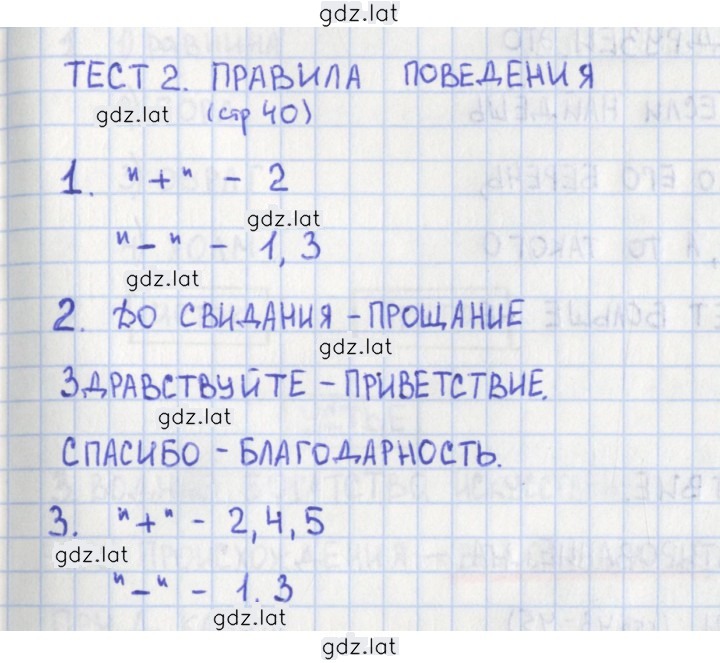 gdz.lat
ТЕСТ 2. ПРАВИЛА ПОВЕДЕНИЯ
gdz.lat (стр 40)
1. "+" - 2
gdz.lat
"-" - 1, 3
gdz.lat
2. ДО СВИДАНИЯ - ПРОЩАНИЕ
gdz.lat
ЗДРАВСТВУЙТЕ - ПРИВЕТСТВИЕ.
gdz.lat
СПАСИБО - БЛАГОДАРНОСТЬ.
3. "+" - 2, 4, 5
gdz.lat
"-" - 1. 3
gdz.lat
gdz.lat